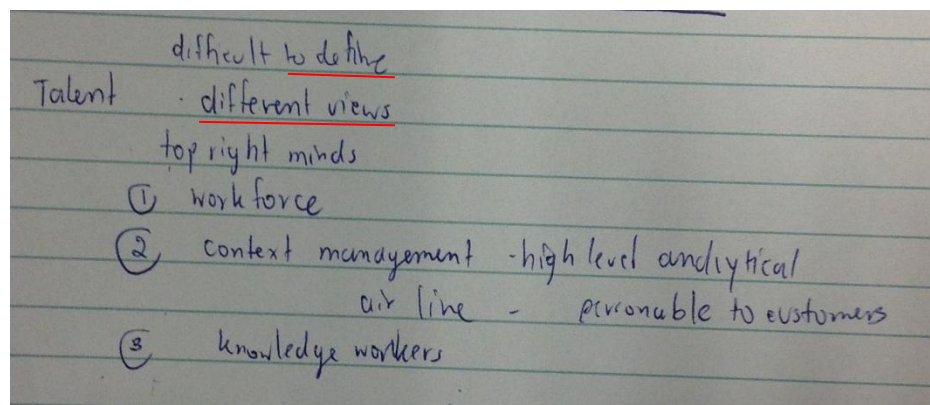 difficult to define
Talent · different views
top right minds
① workforce
② context management - high level analytical
air line - personable to customers
③ knowledge workers